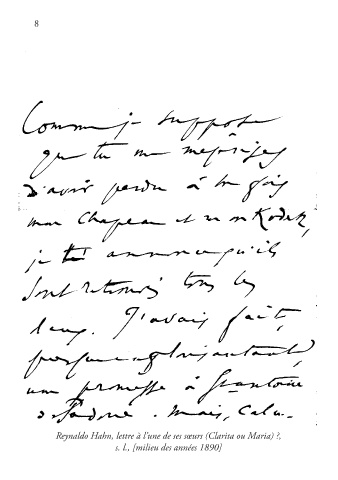 8
Comme je suppose
que tu me méprises
d'avoir perdu à la fois
mon Chapeau et mon Kodak,
je t'annonce qu'ils
sont retrouvés tous les
deux. J'avais fait,
une promesse à St antoine
de Padoue. Mais, Cela
Reynaldo Hahn, lettre à l'une de ses sœurs (Clarita ou Maria) ?,
s. l., [milieu des années 1890]